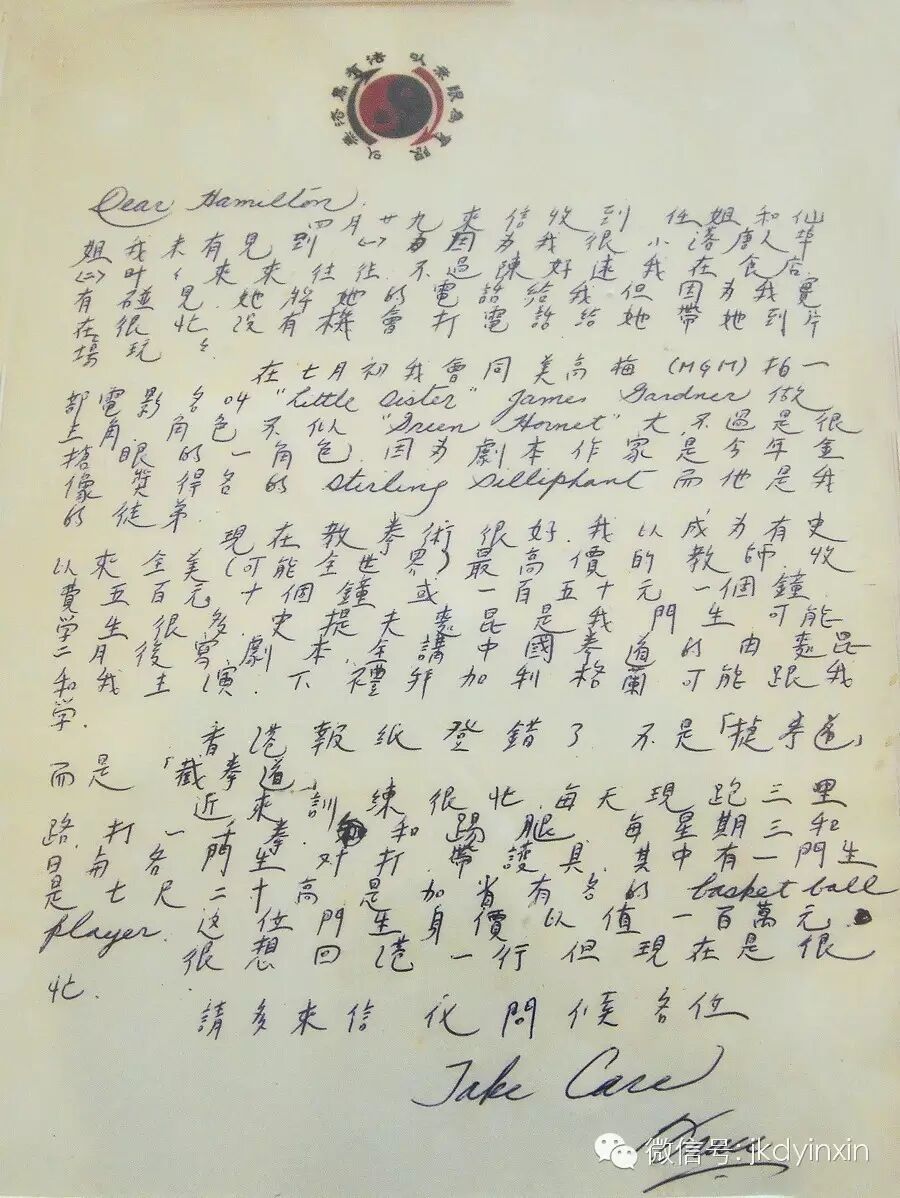 以無法為有法 以無限為有限
Dear Hamilton
四月廿九來信收到 任姐和仙
姐我未有見到 (一)因為我很小落唐人埠
(二)叶〻來來往往 不過陳好逑我在食店
有碰見 她將她的電話給我但因為我實
在很忙 沒有機會打電話給她帶她到片
場玩〻
在七月初我會同美高梅 (MGM) 拍一
部電影名叫 "Little Sister" James Gardner 做
主角 角色不似 "Green Hornet" 大 不過是很
搶眼的一角色 因為劇本作家是今年金
像獎得名的 Stirling Silliphant 而他是我
的徒弟.
現在教拳術很好 我以成為有史
以來全美 (可能全世界) 最高價的教師收
費五百元十個鐘或一百五十元一個鐘
学生很多 史提夫麥昆是我門生 可能
二月後寫劇本全講中國拳道的 由麥昆
和我主演 下禮拜加利格蘭可能跟我
学.
香港報紙登錯了 不是「捷拳道」
而是「截拳道」
近來訓練很忙 每天現跑三里
路. 打一千拳 和踢腿 每星期三和
日每各門生對打帶護具 其中有一門生
是七尺二寸高是加省有名的 basket ball
player. 这位門生身價以值一百萬元
很想回港一行但現在是很
忙.
請多來信 代問候各位
Take Care
Bruce
微信号: jkdyinxin